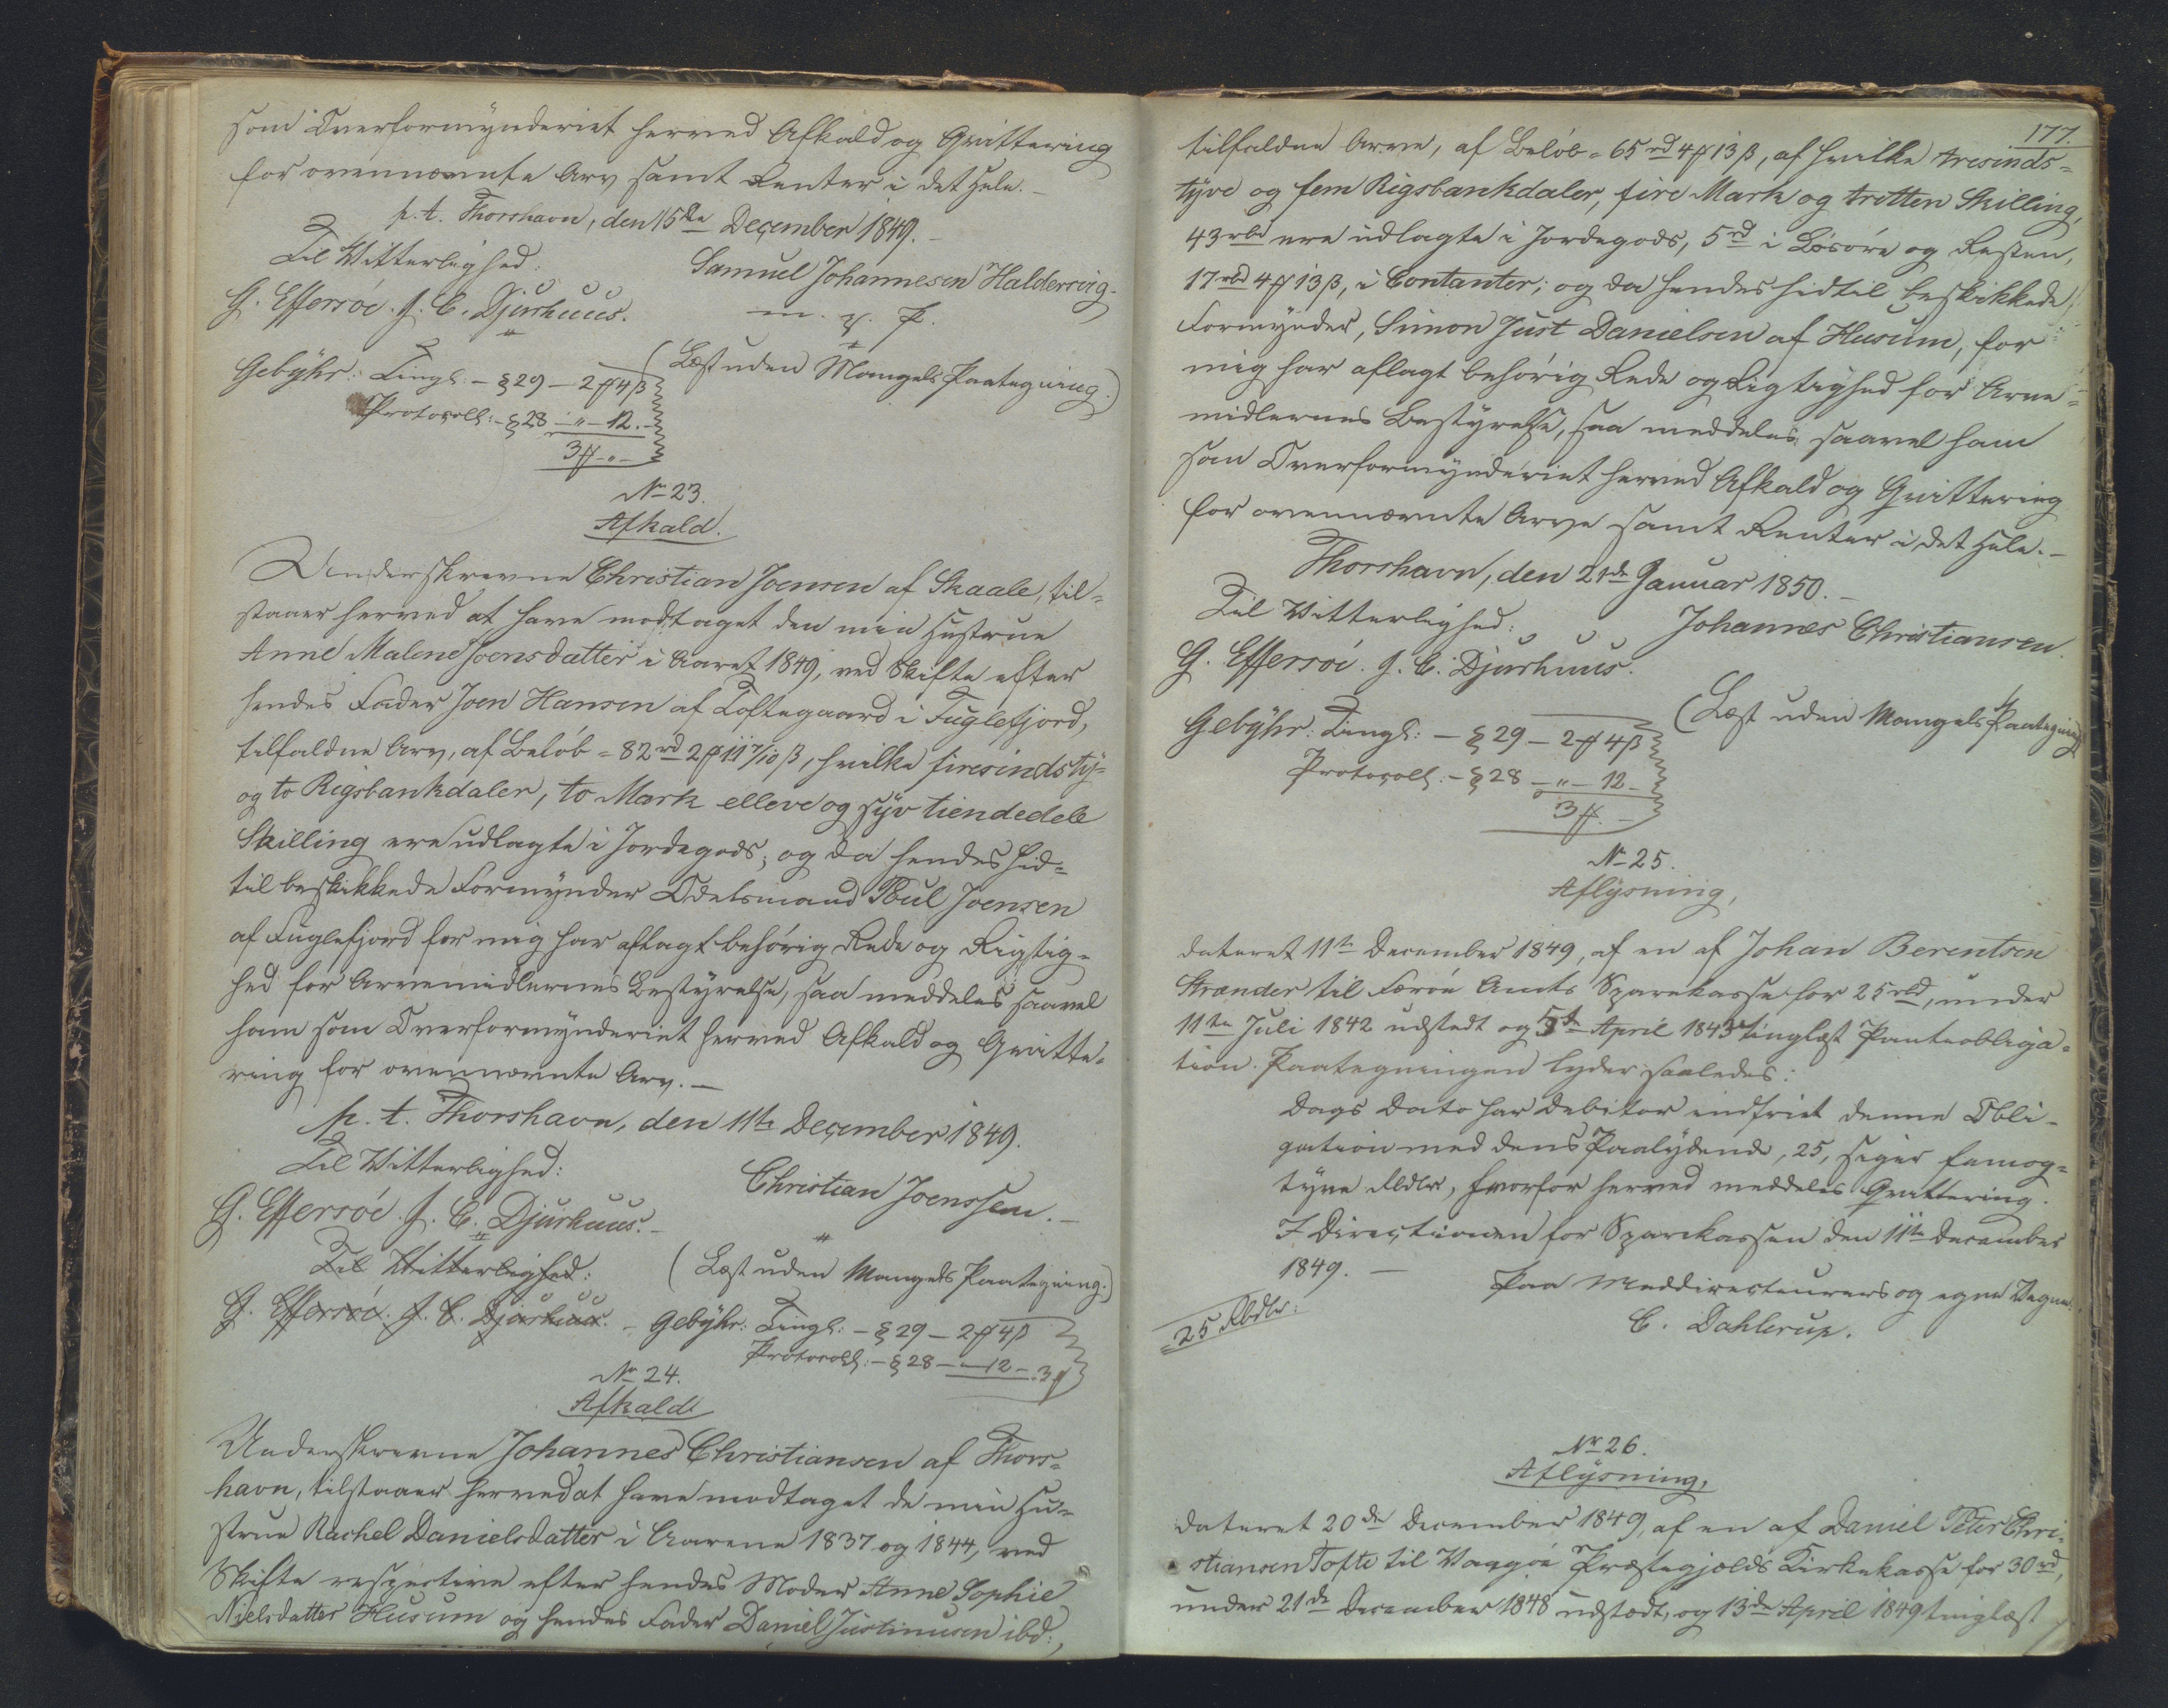 som Overformynderiet herved Afkald og Qvittering
for ovennævnte Arv samt Renter i det Hele. -
p. t. Thorshavn, den 15de December 1849. -
Til Vitterlighed:
Samuel Johannesen Haldersvig.
G. Effersöe. J. C. Djurhuus.
m. f. P.
Gebÿhr: Tingl: - § 29 - 2 ₰ 4 β
(Læst uden Mangels Paategning.)
Protocoll: - § 28 - " - 12. -
3 ₰ - " -
No 23.
Afkald.
Underskrevne Christian Joensen af Skaale, til-
staaer herved at have modtaget den min Hustrue
Anne Malene Joensdatter i Aaret 1849, ved Skifte efter
hendes Fader Joen Hansen af Toftegaard i Fuglefjord,
tilfaldne Arv, af Beløb = 82 rd 2 ₰ 11 7/10 β, hvilke firesindsty-
og to Rigsbankdaler, to Mark elleve og syv tiendedele
Skilling ere udlagte i Jordegods; og da hendes hid-
til beskikkede Formynder Odelsmand Poul Joensen
af Fuglefjord for mig har aflagt behørig Rede og Rigtig-
hed for Arvemidlernes Bestyrelse, saa meddeles saavel
ham som Overformynderiet herved Afkald og Qvitte-
ring for ovennævnte Arv. -
p. t. Thorshavn, den 11te December 1849.
Til Vitterlighed:
Christian Joenssen. -
G. Effersöe. J. C. Djurhuus. -
Til Vitterlighed:
(Læst uden Mangels Paategning.)
G. Effersöe. J. C. Djurhuus. - Gebÿhr: Tingl: - § 29 - 2 ₰ 4 β
Protocoll: - § 28 - " - 12 - 3 ₰
No 24.
Afkald
Underskrevne Johannes Christiansen af Thors-
havn, tilstaaer herved at have modtaget de min Hu-
strue Rachel Danielsdatter i Aarene 1837 og 1844, ved
Skifte respective efter hendes Moder Anne Sophie
Nielsdatter Husum og hendes Fader Daniel Justinusen ibd:,
177.
tilfaldne Arve, af Beløb = 65 rd 4 ₰ 13 β, af hvilke tresinds-
tyve og fem Rigsbankdaler, fire Mark og tretten Skilling,
43 rbd ere udlagte i Jordegods, 5 rd i Løsøre og Resten,
17 rbd 4 ₰ 13 β, i Contanter; og da hendes hidtil beskikkede
Formynder, Simon Just Danielsen af Husum, for
mig har aflagt behørig Rede og Rigtighed for Arve-
midlernes Bestyrelse, saa meddeles saavel ham
som Overformynderiet herved Afkald og Qvittering
for ovennævnte Arve samt Renter i det Hele. -
Thorshavn, den 21de Januar 1850. -
Til Vitterlighed:
Johannes Christiansen.
G. Effersöe. J. C. Djurhuus.
(Læst uden Mangels Paategning)
Gebÿhr: Tingl: - § 29 - 2 ₰ 4 β
Protocoll: - § 28 - " - 12 -
3 ₰. -
No 25.
Aflysning,
dateret 11te December 1849, af en af Johan Berentsen
Strænder til Færöe Amts Sparekasse for 25 rbd, under
11te Juli 1842 udstedt og 5te April 1843 tinglæst Panteobliga-
tion. Paategningen lyder saaledes:
Dags Dato har Debitor indfriet denne Obli-
gation med dens Paalydende, 25, siger femog-
tyve Rbdlr, hvorfor herved meddeles Qvittering.
I Directionen for Sparekassen den 11te December
1849. -
Paa Meddirecteurers og egne Vegne.
C. Dahlerup.
25 Rbdlr:
No 26.
Aflysning,
dateret 20de December 1849, af en af Daniel Peter Chri-
stiansen Tofte til Vaagöe Præstegjelds Kirkekasse for 30 rd,
under 21de December 1848 udstedt, og 13de April 1849 tinglæst